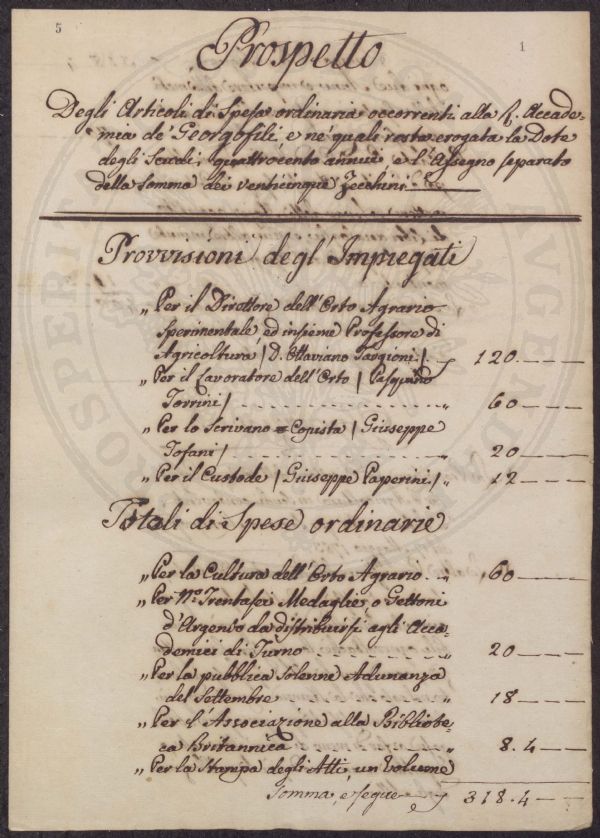 5
1
Prospetto
Degli Articoli di Spesa ordinaria occorrenti alla R. Accade-
mia de' Georgofili, e ne' quali resta erogata la Dote
degli Scudi, quattrocento annui e l'Assegno separato
della somma dei venticinque Zecchini
Provvisioni degl' Impiegati
„ Per il Direttore dell'Orto Agrario
Sperimentale, ed insieme Professore di
Agricoltura / D. Ottaviano Targioni / 120. - - -
„ Per il Lavoratore dell'Orto / Pasquino
Torrini / - - - „ 60 - - -
„ Per lo Scrivano = Copista / Giuseppe
Tofani / - - - „ 20 - - -
„ Per il Custode / Giuseppe Paperini / „ 12 - - -
Titoli di Spese ordinarie
„ Per la Cultura dell'Orto Agrario „ 60 - - -
„ Per No. Trentasei Medaglie, o Gettoni
d'Argento da distribuirsi agli Acca-
demici di Turno - - - „ 20 - - -
„ Per la pubblica solenne Adunanza
del Settembre „ 18 - - -
„ Per l'Associazione alla Bibliote-
ca Britannica „ 8. 4 - - -
„ Per la Stampa degli Atti, un Volume
Somma, e segue 318. 4 - -
PROSPERITATI AUGENDAE